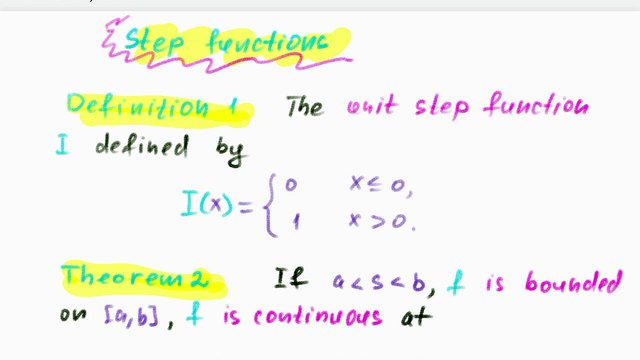 Step functions
Definition 1 The unit step function
I defined by
I(x) = { 0 x ≤ 0,
1 x > 0.
Theorem 2 If a < s < b, f is bounded
on [a,b], f is continuous at